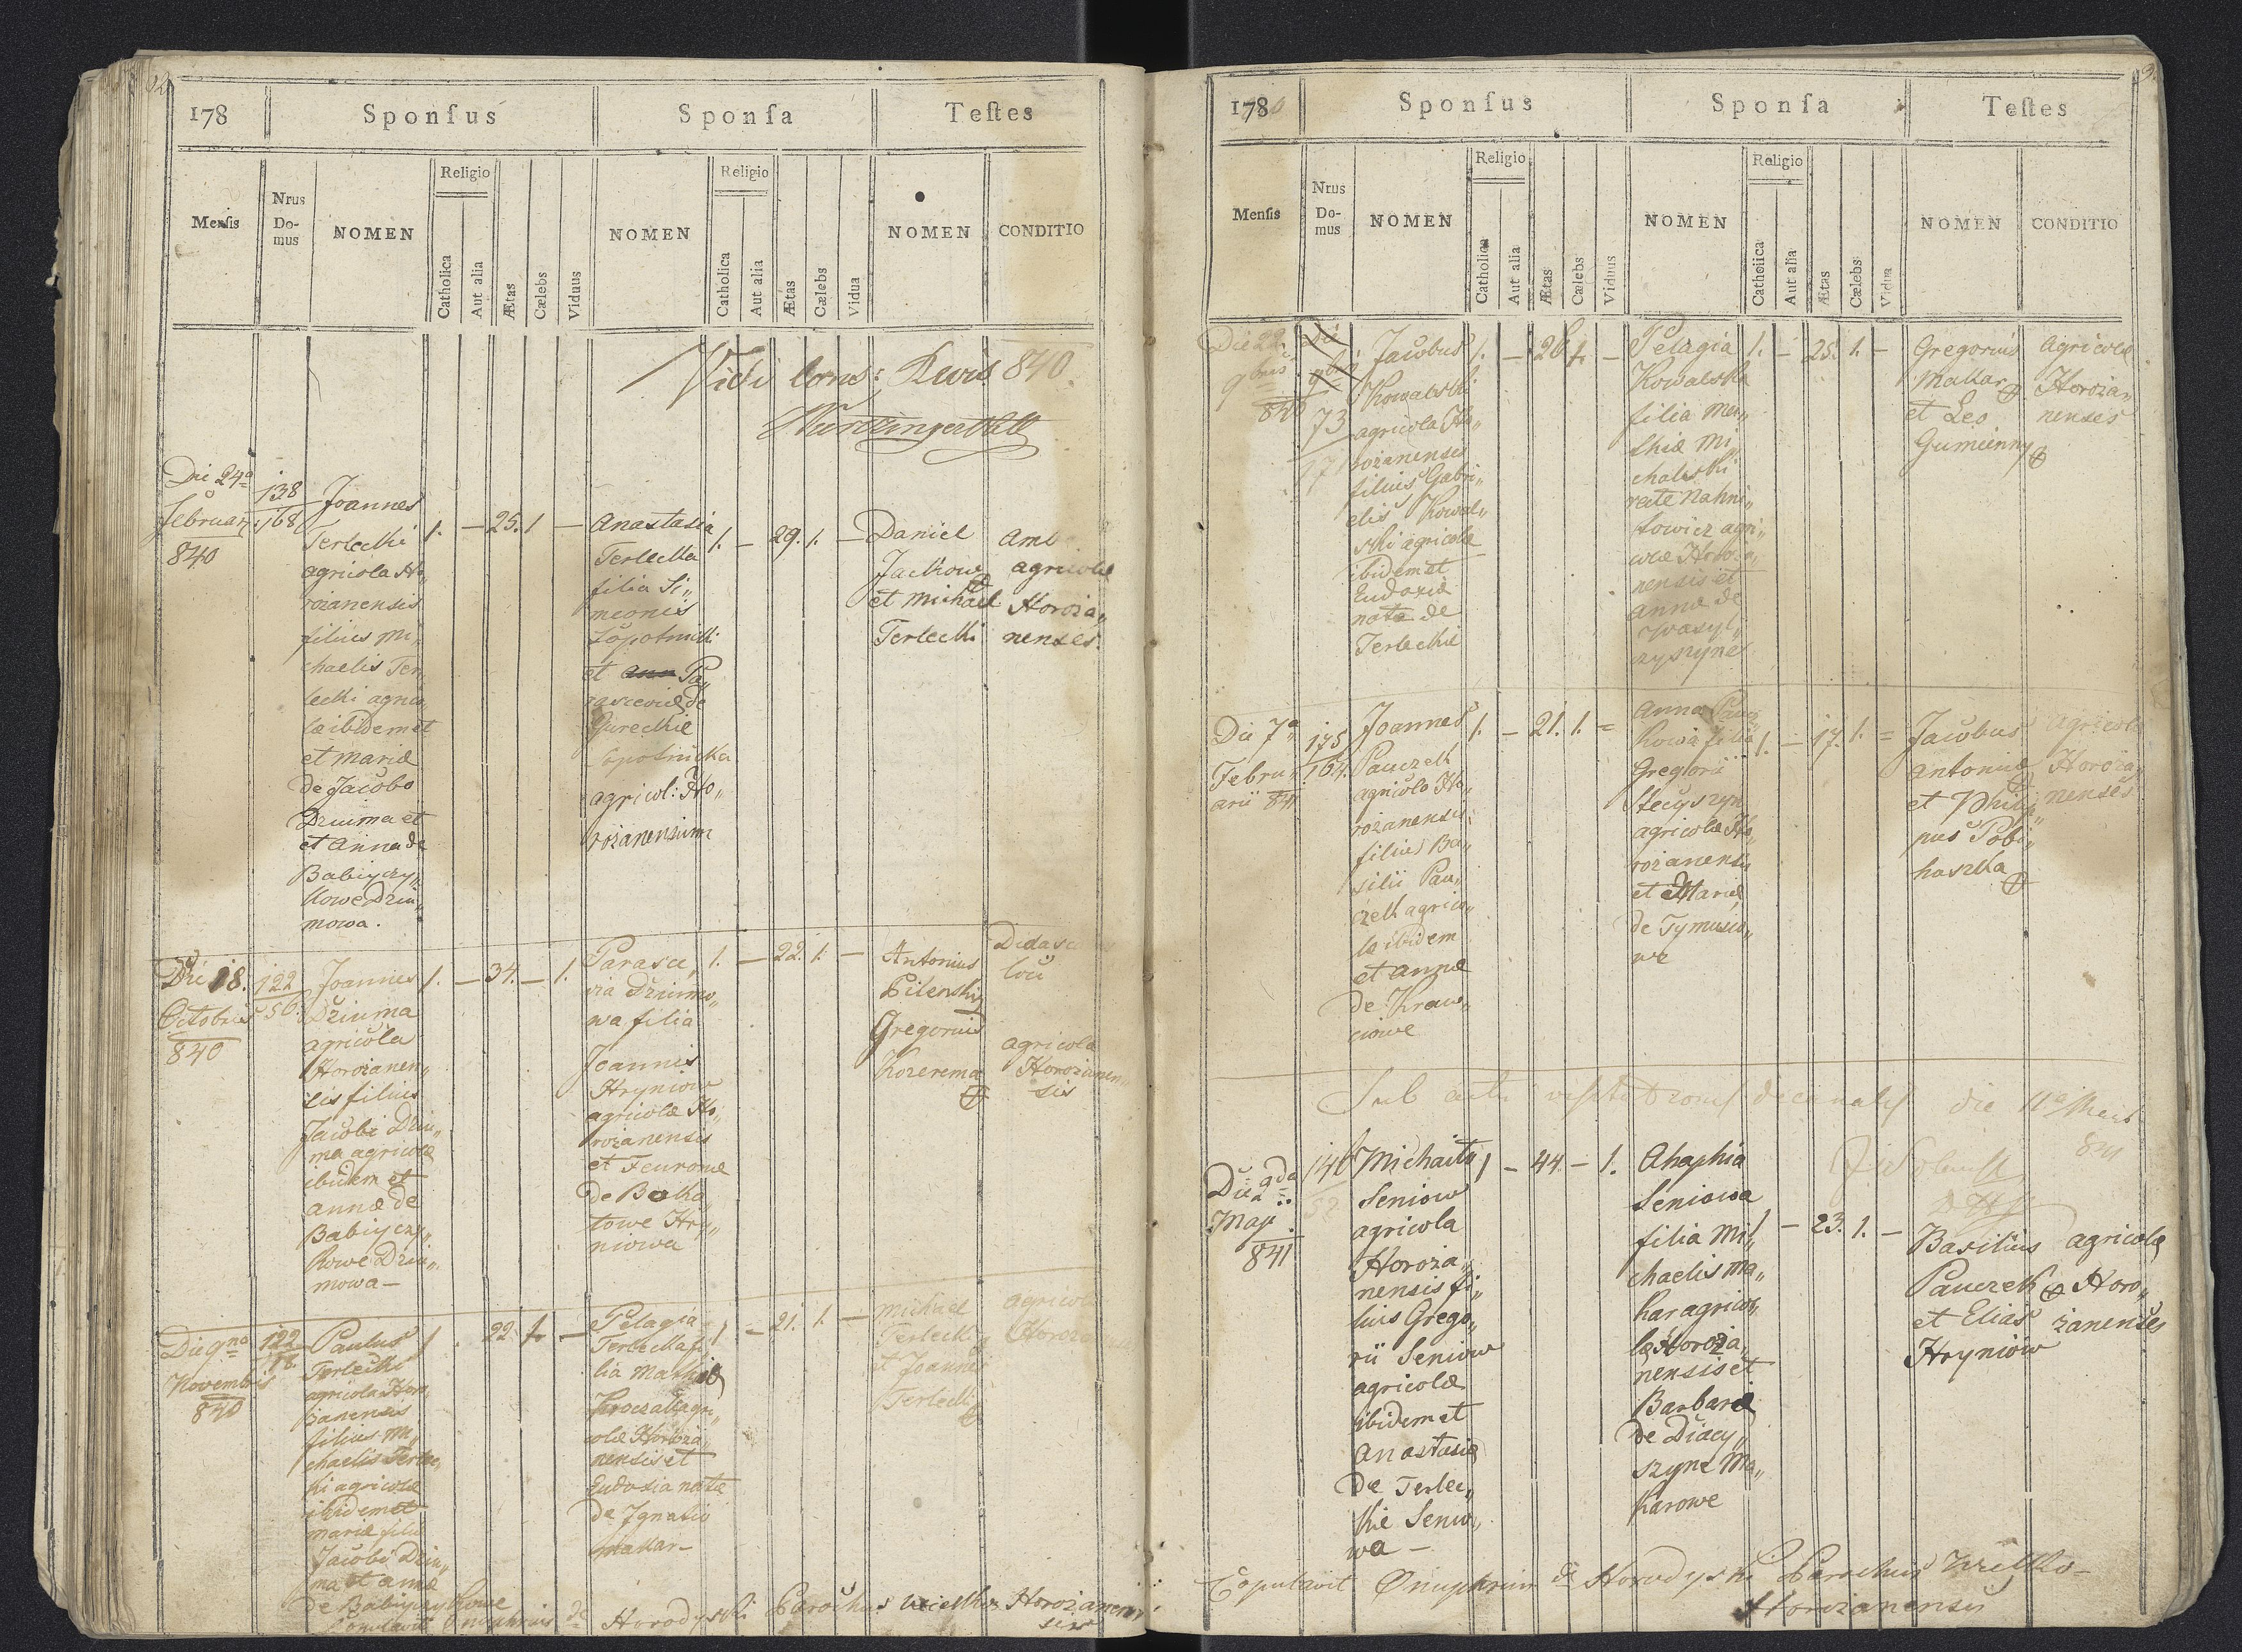 178
Sponsus
Sponsa
Testes
Mensis
Nrus
Do-
mus
NOMEN
Religio
Catholica
Aut alia
Ætas
Cælebs
Viduus
NOMEN
Religio
Catholica
Aut alia
Ætas
Cælebs
Vidua
NOMEN
CONDITIO
Vidi
840
Die 24a
Februar
840
138
168
Joannes
Terlecki
agricola Ho„
rożanensis
filius Mi„
chaelis Ter„
lecki agrico„
læ ibidem et
et Mariæ
de Jacobo
Dziuma et
et Anna de
Babiyczy„
kowe Dziu„
mowa.
1. — 25. 1 —
Anastasia
Terlecka
filia Si„
meonis
Łopotnicki
et Pa„
rasceviæ de
Gureckie
Łopotnicka
agricol: Ho„
rożanensium
1. — 29. 1. —
Daniel
Jackow
et Michael
Terlecki
Amb
agricolæ
Horoża„
nenses.
Die 18.
Octobris
840
122
56
Joannes
Dziuma
agricola
Horożanen„
sis filius
Jacobi Dziu„
ma agricolæ
ibidem et
Annæ de
Babiyczy„
kowe Dziu„
mowa —
1. — 34. — 1.
Parasce„
via Dziumo„
wa filia
Joannis
Hryniow
agricolæ Ho„
rożanensis
et
towe Hry„
niowa
1. — 22. 1. —
Antonius
Bilenski
Gregorius
Kozerema
agricola
Horożanen„
sis
Die 9na
Novembris
840
122
Paulus
Terlecki
agricola Horo„
żanensis
filius Mi„
chaelis Terlec„
ki agricolæ
ibidem et
Mariæ filiæ
Jacobi Dziu„
ma et Annæ
de Babiyczykowe
1. 22. 1. —
Pelagia
Terlecka fi„
lia Mathiæ
agri„
colæ Horoża„
nensis et
Eudosia natæ
de Ignatio
Makar —
1 — 21. 1. —
Michael
Terlecki
et Joannes
Terlecki
agricolæ
Copulavit Onuphrius de Horodyski Parochus Wielko Horożanen„
sis
1780
Sponsus
Sponsa
Testes
Mensis
Nrus
Do-
mus
NOMEN
Religio
Catholica
Aut alia
Ætas
Cælebs
Viduus
NOMEN
Religio
Catholica
Aut alia
Ætas
Cælebs
Vidua
NOMEN
CONDITIO
Die 22
9bris
840
73
Jacobus
Kowalski
agricola Ho„
rożanensis
filius Gabri„
elis Kowal„
ski agricolæ
ibidem et
Eudoxiæ
nata de
Terleckie
1. — 26 1. —
Pelagia
Kowalska
filia
Mi„
chalski
agri„
colæ Horoża„
nensis et
Annæ de
Wasyl„
czyszyne
1. — 25. 1. —
Gregorius
Makar
et Leo
Gumienny
Agricolæ
Horoża„
nenses
Die 7a
Febru„
arii 841
175
164.
Joannes
Pauczek
agricola Ho„
rożanensis
filius Ba„
silii Pau„
czek agrico„
læ ibidem
et Annæ
de Kraw„
ciowe
1. — 21. 1. =
Anna Paucz„
kowa filia
Gregorii
Stecyszyn
agricolæ Ho„
rożanensis
et Mariæ
de Tymusio„
we
1. — 17. 1. =
Jacobus
Antonius
et Philip„
pus Pobi„
haszka
Agricolæ
Horoża„
nenses
Sub actu visitationis decanalis die 11a Maii
841
Die 2da
Maji
841
146
52
Michailo
Seniow
agricola
Horoża„
nensis fi„
lius Grego„
rii Seniow
agricolæ
ibidem et
Anastasiæ
de Terlec„
kie Senio„
wa —
1 — 44 — 1.
Ahaphia
Seniowa
filia Mi„
chaelis Ma„
kar agrico„
læ Horoża„
nensis et
Barbaræ
de Diacy„
szyne Ma„
karowe
1 — 23. 1. —
Basilius
Pauczek
et Elias
Hryniow
agricolæ
Horo„
żanenses
Copulavit Onuphrius de Horodyski Parochus Wielko-
Horożanensis